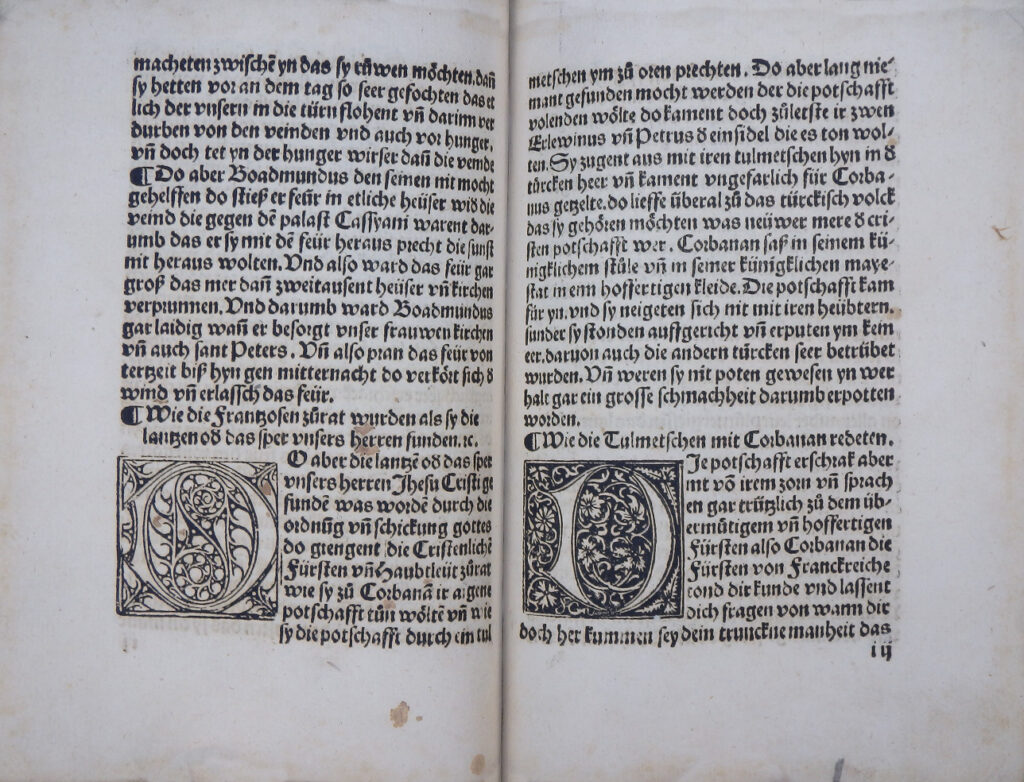 macheten zwischē yn das sy růwen möchten. dañ
sy hetten vor an dem tag so seer gefochten das et
lich der vnsern in die türn flohent vñ darinn ver
durben von den veinden vnd auch vor hunger.
vñ doch tet yn der hunger wirser dañ die veinde
¶Do aber Boadmundus den seinen nit mocht
gehelffen do stieß er feür in etliche heüser wid die
veind die gegen dē palast Cassyani warent dar-
umb das er sy mit dē feür heraus precht die sunst
nit heraus wolten. Vnd also ward das feür gar
groß das mer dañ zweitausent heüser vñ kirchen
verprunnen. Vnd darumb ward Boadmundus
gar laidig wañ er besorgt vnser frauwen kirchen
vñ auch sant Peters. Vñ also pran das feür von
tertzeit biß hyn gen mitternacht do verkört sich d
wind vñ erlassch das feür.
¶Wie die Frantzosen zůrat wurden als sy die
lantzen od das sper vnsers herren funden. ꝛc.
DO aber die lantzē od das sper
vnsers herren Jhesu Cristi ge
fundē was wordē durch die
ordnūg vñ schickung gottes
do giengent die Cristenlichē
Fürsten vñ Haubtleüt zůrat
wie sy zů Corbanā ir aigene
potschafft tůn wöltē vñ wie
sy die potschafft durch ein tul
metschen ym zů oren prechten. Do aber lang nie-
mant gefunden mocht werden der die potschafft
volenden wölte do kament doch zůletste ir zwen
Erlewinus vñ Petrus d einsidel die es ton wol-
ten. Sy zugent aus mit iren tulmetschen hyn in d
türcken heer vñ kament vngefarlich für Corba-
nus getzelte. do lieffe überal zů das türckisch volck
das sy gehören möchten was neüwer mere d cri-
sten potschafft wer. Corbanan saß in seinem kü-
nigklichem stůle vñ in seiner künigklichen maye-
stat in enn hoffertigen kleide. Die potschafft kam
für yn. vnd sy neigeten sich nit mit iren heübtern.
sunder sy stonden auffgericht vñ erputen ym kein
eer. daruon auch die andern türcken seer betrübet
wurden. Vñ weren sy nit poten gewesen yn wer
halt gar ein grosse schmachheit darumb erpotten
worden.
¶Wie die Tulmetschen mit Corbanan redeten.
DJe potschafft erschrak aber
nit vō irem zorn vñ sprach
en gar trützlich zů dem üb-
ermütigem vñ hoffertigen
Fürsten also Corbanan die
Fürsten von Franckreiche
tond dir kunde vnd lassent
dich fragen von wann dir
doch her kummen sey dein trunckne manheit das
iij